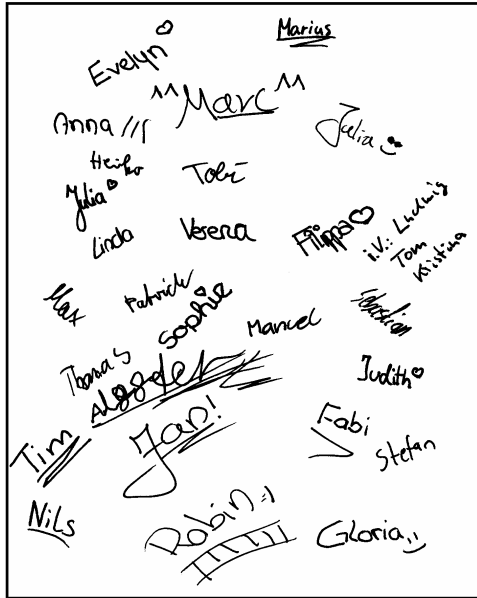 Marius
Evelyn
"Marc"
Anna
Julia
Heiko
Tobi
Julia
Linda
Verena
Filippa
i.V.: Ludwig
Tom
Kristina
Max
Patrick
Sophie
Manuel
Sebastian
Thomas
Judith
Tim
Jan!
Fabi
Stefan
Nils
Robin =)
Gloria